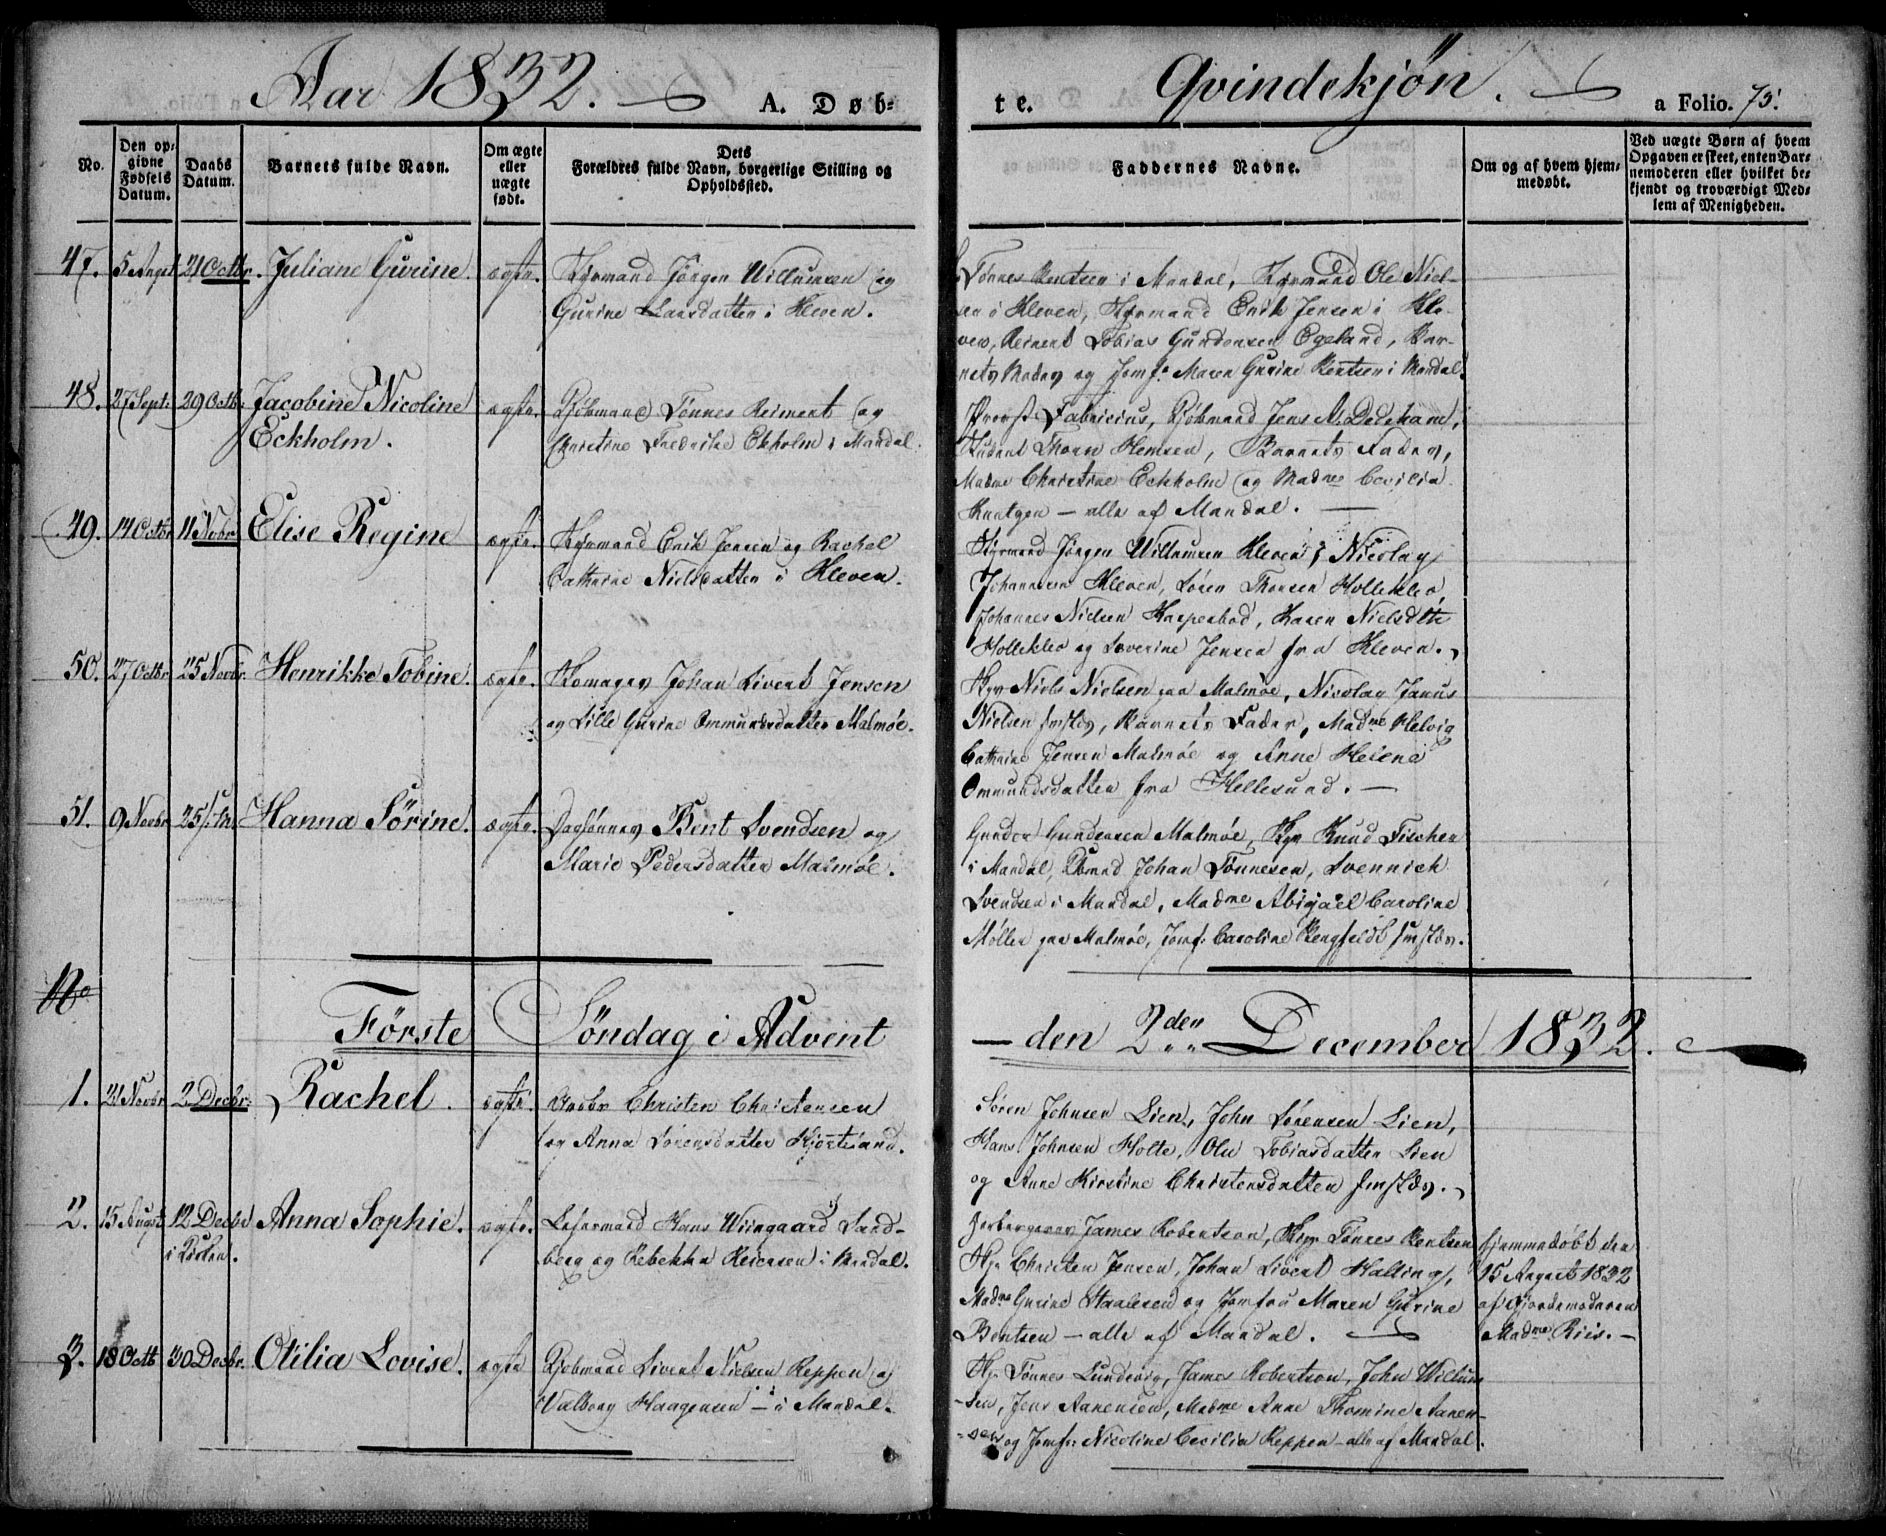 Aar 1832.
A. Døb-
te.
Qvindekjøn.
a Folio. 75.
No.
Den op-
givne
Fødsels
Datum.
Daabs
Datum.
Barnets fulde Navn.
Om ægte
eller
uægte
født.
Dets
Forældres fulde Navn, borgerlige Stilling og
Opholdssted.
Faddernes Navne.
Om og af hvem hjem-
medøbt.
Ved uægte Børn af hvem
Opgaven er skeet, enten Bar-
nemoderen eller hvilket be-
kjendt og troværdigt Med-
lem af Menigheden.
47. 5 Augst 21 Octbr. Juliane Gurine. ægte. Styrmand Jørgen Willumsen og
Gurine Larsdatter i Kleven.
Tønnes Rentsen i Mandal, Styrmand Ole Niel-
sen i Kleven, Styrmand Erik Jensen i Kle-
ven, Reinert Tobias Gundersen Egeland, Bar-
nets Moder og Jomf: Maren Gurine Rentsen i Mandal.
48. 27 Sept: 29 Octb. Jacobine Nicoline
Eckholm.
ægte. Kjøbmand Tønnes Reinert og
Christine Fredrike Ekholm i Mandal.
Provst Fabricius, Kjøbmand Jens A. Dedekam,
Student Thorn Hemsen, Barnets Fader,
Madme Christine Eckholm og Madme Cecilia
Knutzen — alle af Mandal. —
49. 14 Octbr 11 Novbr Elise Regine ægte. Styrmand Erik Jensen og Rachel
Cathrine Nielsdatter i Kleven.
Styrmand Jørgen Willumsen Kleven, Nicolay
Johannesen Kleven, Søren Thorsen Holleklev,
Johannes Nielsen Kaspersbod, Karen Nielsdtr
Holleklev og Severine Jensen fra Kleven.
50. 27 Octbr 25 Novbr. Henrikke Tobine. ægte. Skomager Johan Sivert Jensen
og Lille Gurine Ommundsdatter Malmøe.
Skpr Niels Nielsen paa Malmøe, Nicolay Janus
Nielsen smstds, Barnets Fader, Madme Helvig
Cathrine Jensen Malmøe og Anne Helena
Ommundsdatter fra Hellesund. —
51. 9 Novbr 25 Hanna Sørine. ægte. Bent Svendsen og
Marie Pedersdatter Malmøe.
Gunder Gundersen Malmøe, Skpr Knud Fischer
i Mandal, Johan Tønnesen, Svennich
Svendsen i Mandal, Madme Abigael Caroline
Møller paa Malmøe, Jomf: Caroline Bengfeldt smstds.
No
Første Søndag i Advent
— den 2den December 1832.
1. 21 Novbr 2 Decbr. Rachel. ægte. Gaabr Christen Christensen
og Anna Sørensdatter Hjortesand.
Søren Johnsen Lien, John Sørensen Lien,
Hans Johnsen Holte, Olu Tobiasdatter Lien
og Anne Kirstine Christensdatter smstds.
2. 15 Augst 12 Decbr
i Kirken.
Anna Sophie. ægte. Hans Wiingaard Sand-
berg og Rebekka Reiersen i Mandal.
Herbergerer James Robertson, Skpr Tønnes Rentsen
Skpr Christen Jensen, Johan Sivert Halling,
Madme Gurine Staalesen og Jomfru Maren Gurine
Bentsen — alle af Mandal. —
Hjemmedøbt den
15 August 1832
af Gjordemoderen
Madme Riis. —
3. 18 Octb 30 Decbr. Otilia Lovise. ægte Kjøbmand Sivert Nielsen Reppen og
Valborg Haagensen — i Mandal.
Skpr Tønnes Lundevig, James Robertson, John Willum-
sen, Jens Aanensen, Madme Anne Thomine Aanen-
sen og Jomfr: Nicoline Cecilia Reppen — alle af Mandal.